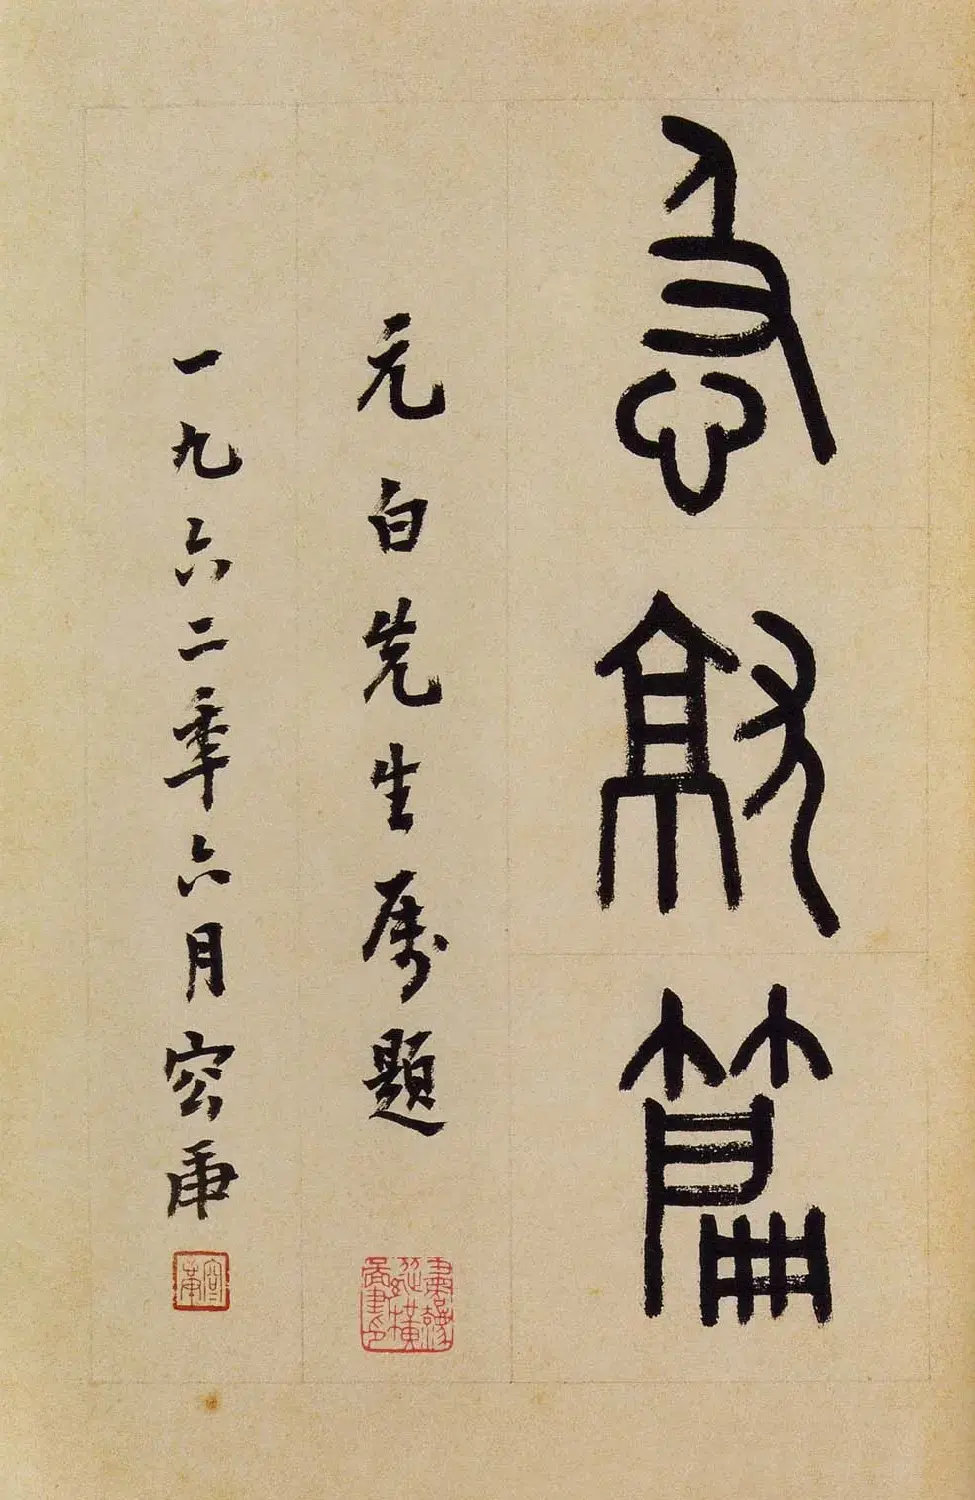 急就篇
元白先生属题
一九六二秊六月容庚
容庚